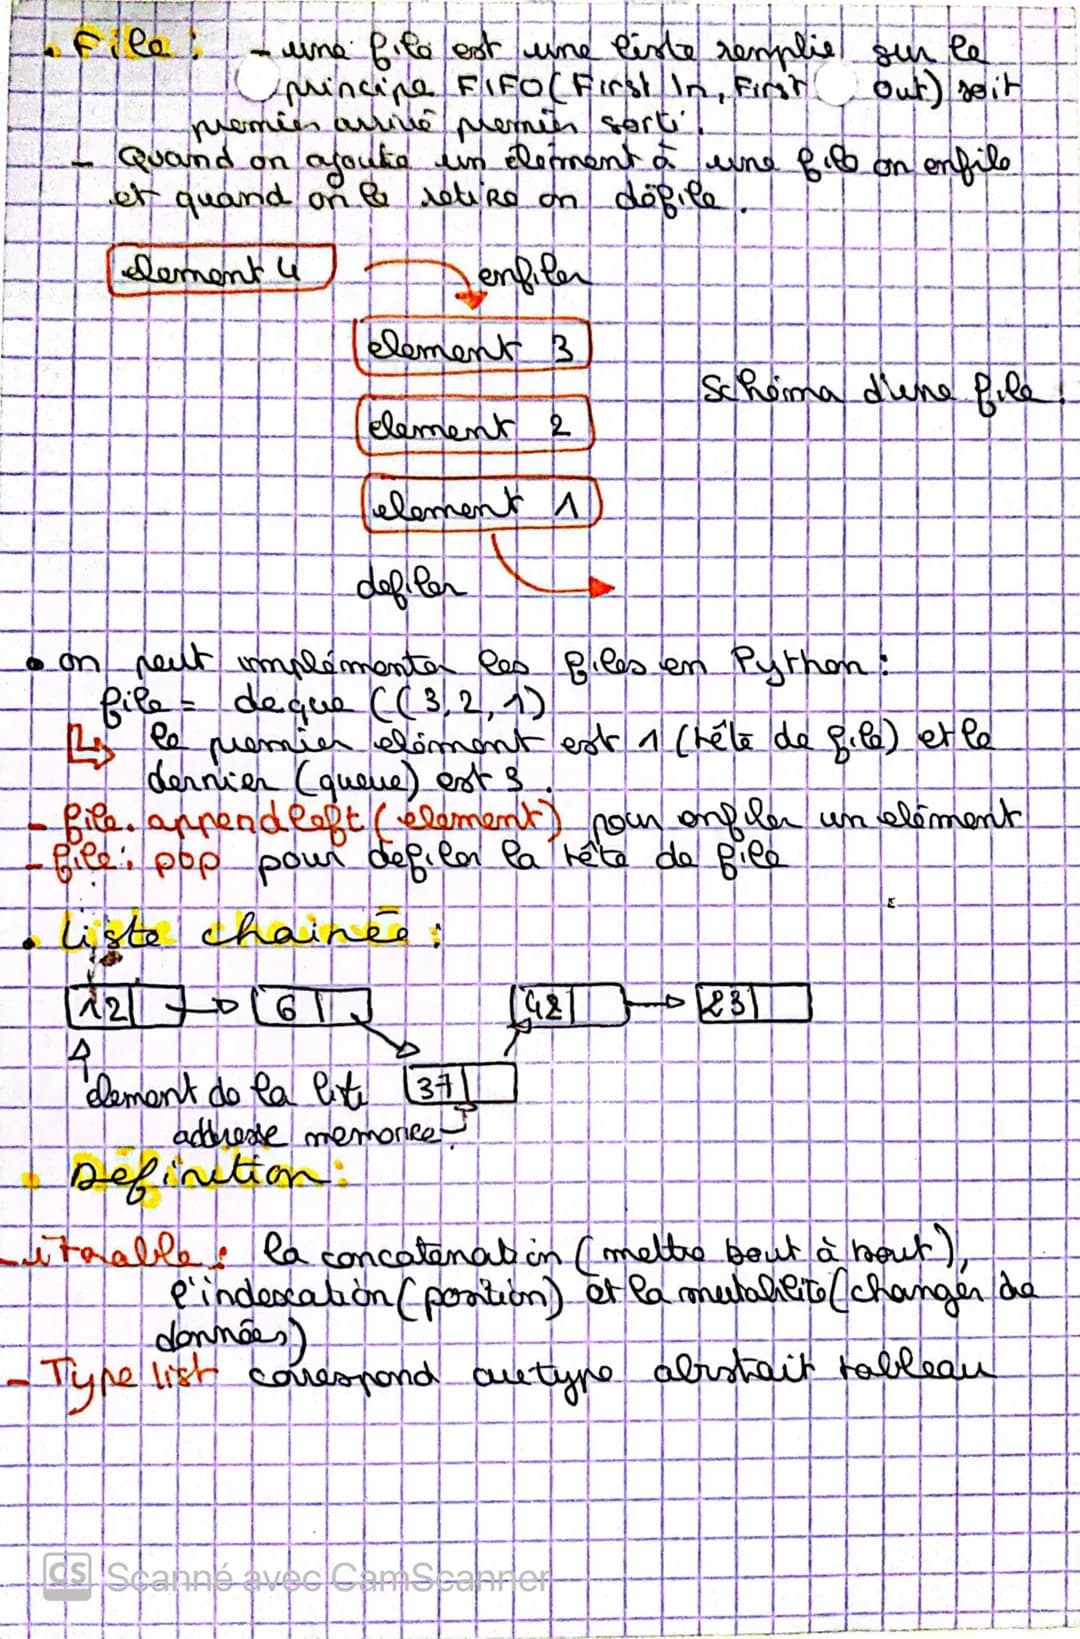 • File : - une file est une liste remplie sur le
principe FIFO (First In, First Out) soit
premier arrivé premier sorti.
- Quand on ajoute un élément à une file on enfile
et quand on le retire on défile.
element 4
enfiler
element 3
Schéma d'une file.
element 2
element 1
defiler
• on peut implémenter les files en Python :
file = deque ((3, 2, 1)
le premier élément est 1 (tête de file) et le
dernier (queue) est 3.
- file. appendleft (element) pour enfiler un élément
- file. pop pour défiler la tête de file
• Liste chainée :
12 6 42 23
37
element de la liste
addresse memoriee
• Définition :
- itérable : la concatenation (mettre bout à bout),
l'indexation (position) et la mutabilité (changer de
données)
- Type list correspond au type abstrait tableau
CS Scanné avec CamScanner